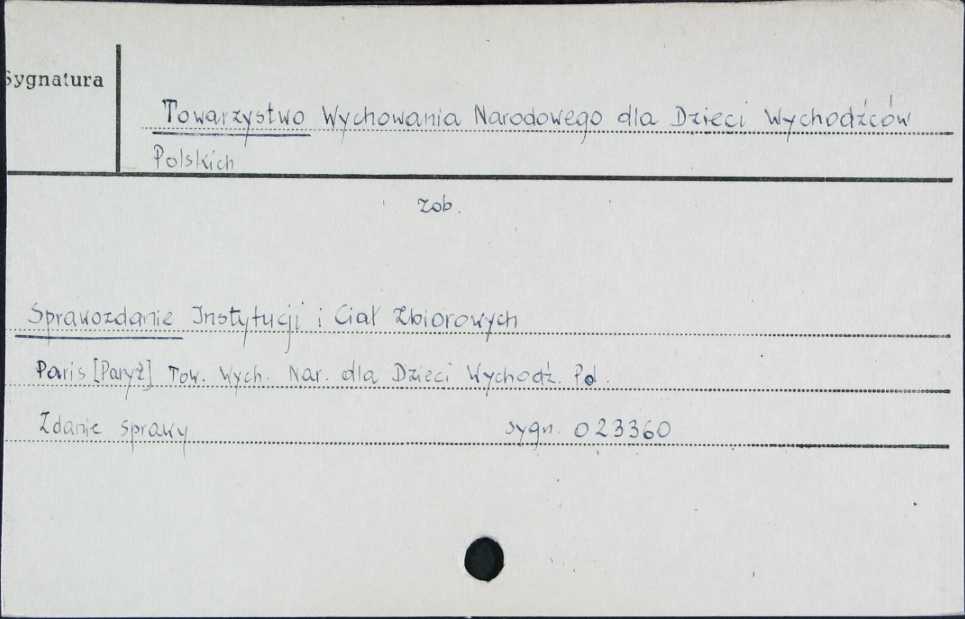 Sygnatura
Towarzystwo Wychowania Narodowego dla Dzieci Wychodźców
Polskich
zob.
Sprawozdanie Instytucji i Ciał Zbiorowych
Paris [Paryż] Tow. Wych. Nar. dla Dzieci Wychodź. Pol.
Zdanie sprawy sygn. 023360